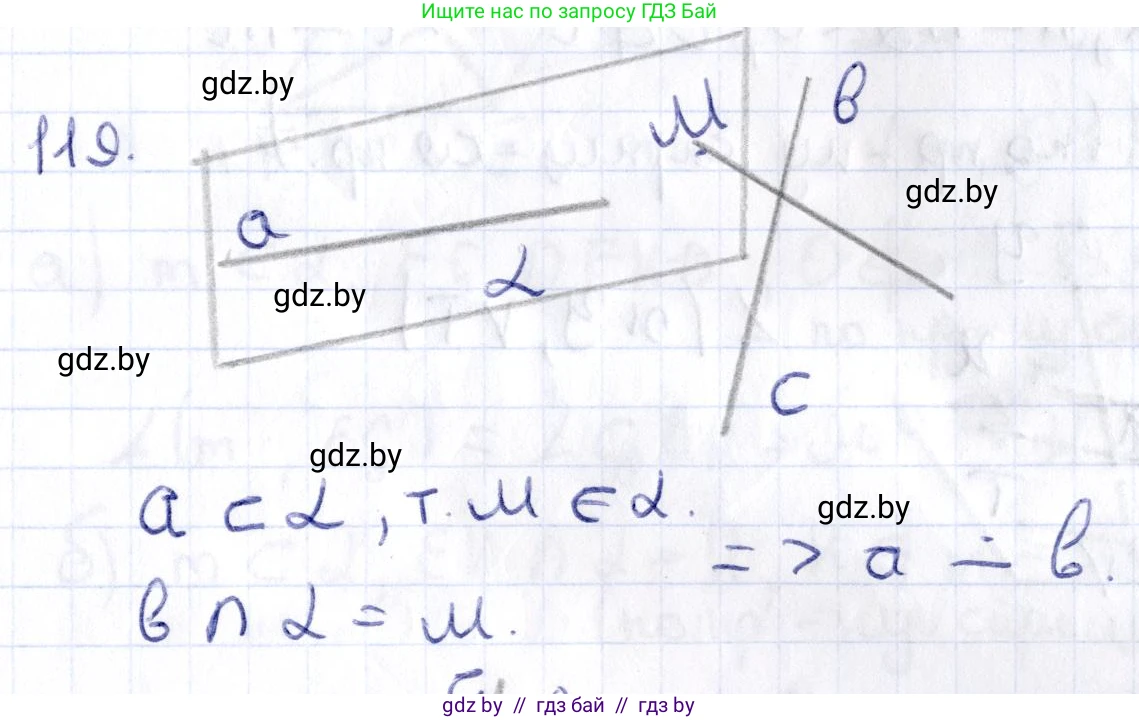 Ищите нас по запросу ГДЗ Бай
gdz.by
119.
М
в
gdz.by
а
α
gdz.by
gdz.by
с
gdz.by
а ⊂ α, т. М ∈ α.
gdz.by
=> а ∸ в.
в ∩ α = М.
gdz by // гдз бай // гдз by